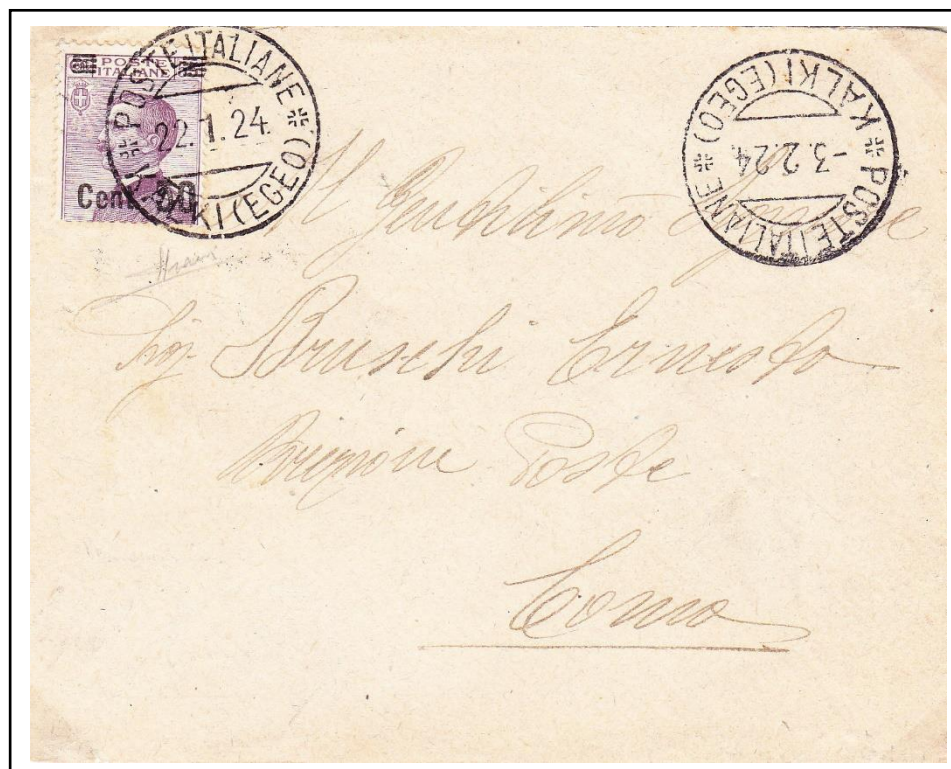 POSTE
ITALIANE
Cent. 50
POSTE ITALIANE
22.1.24
KALKI (EGEO)
POSTE ITALIANE
-3.2.24
KALKI (EGEO)
Al Gentilissimo Signore
Sig. Bruschi Ernesto
Direzione Poste
Como